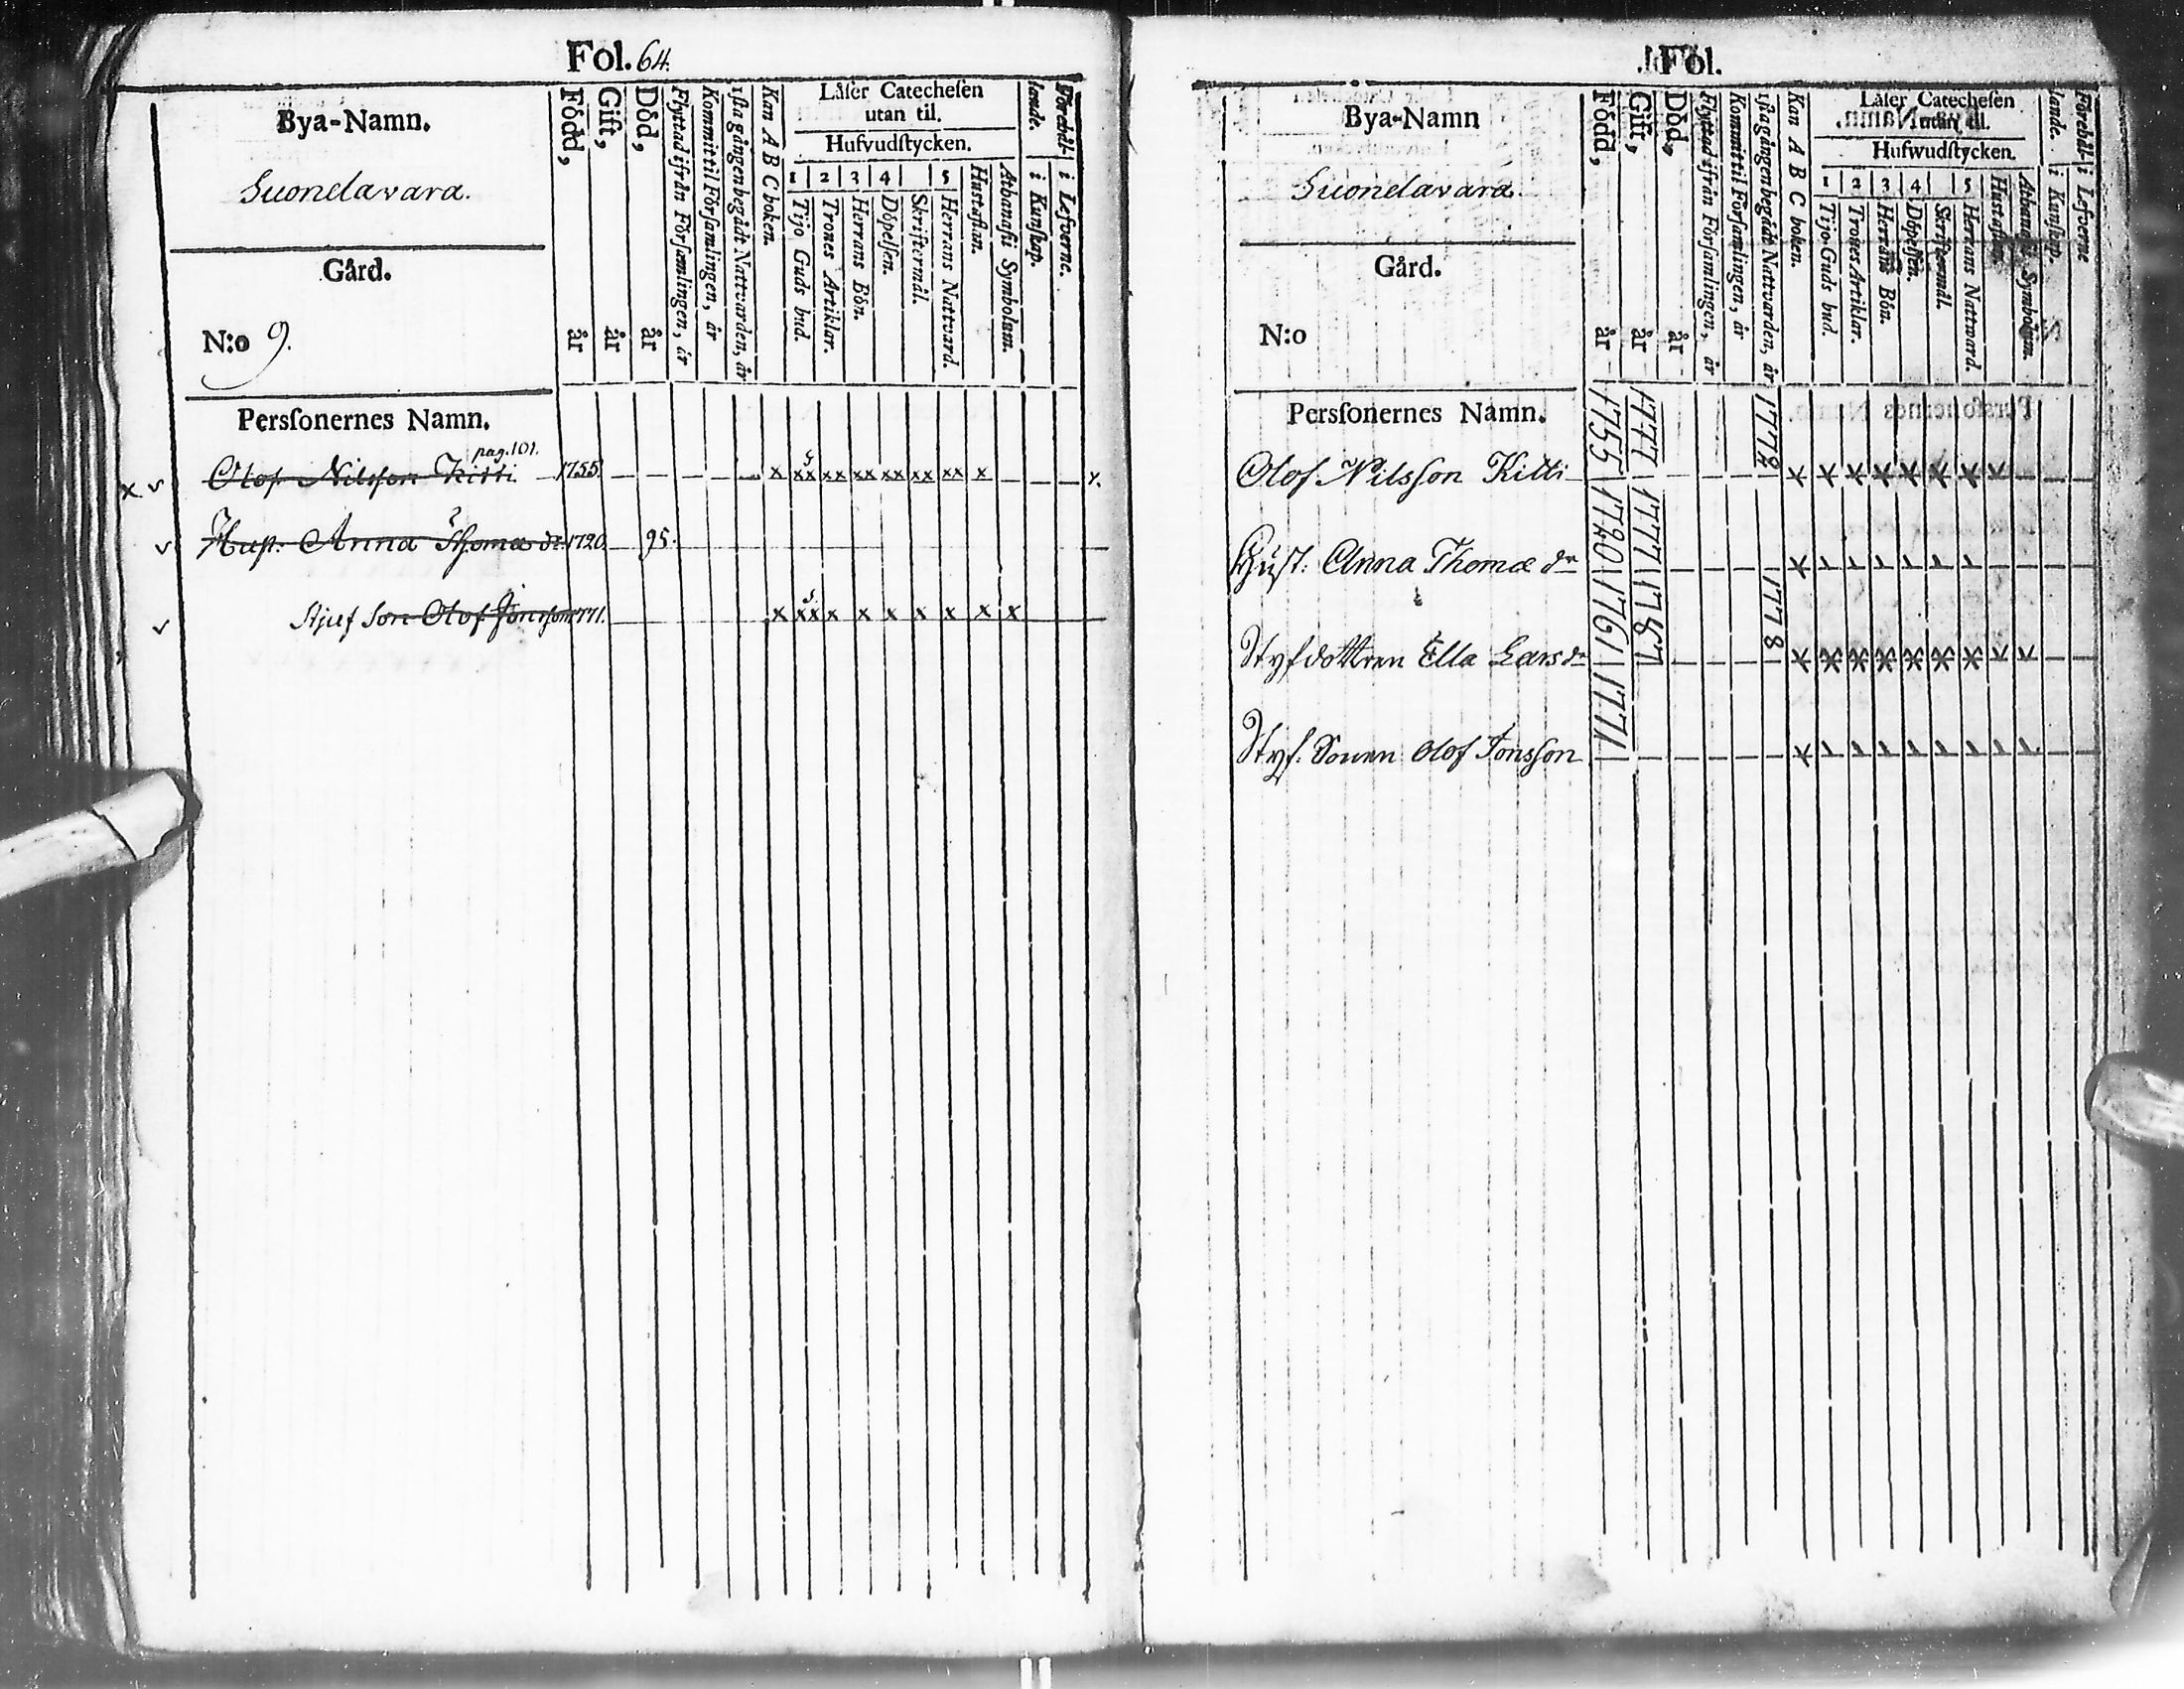 Fol. 64.
Bya-Namn.
Suonelavara.
Gård.
N:o 9.
Född, år
Gift, år
Död, år
Flyttad ifrån Församlingen, år
Kommit til Församlingen, år
1sta gången begådt Nattvarden, år
Kan A B C boken.
Läser Catechesen
utan til.
Hufvudstycken.
1 2 3 4 5
Tijo Guds bud.
Trones Artiklar.
Herrans Bön.
Döpelsen.
Skriftermål.
Herrans Nattvard.
Hustaflan.
Athanasii Symbolum.
Förehållande.
i Kunskap.
i Lefverne.
Personernes Namn.
pag. 101.
x v Olof Nilsson Kitti 1755 x xx xx xx xx xx xx x
v Hust. Anna Thomæ dr 1720 95.
v Stjuf Son Olof Jonsson 1771. x xx x x x x x x x
Fol.
Bya-Namn
Suonelavara.
Gård.
N:o
Född, år
Gift, år
Död, år
Flyttad ifrån Församlingen, år
Kommit til Församlingen, år
1sta gången begådt Nattvarden, år
Kan A B C boken.
Läser Catechesen
utan til.
Hufwudstycken.
1 2 3 4 5
Tijo Guds bud.
Trones Artiklar.
Herrans Bön.
Döpelsen.
Skriftermål.
Herrans Nattward.
Hustaflan.
Athanasii Symbolum.
Förehållande.
i Kunskap.
i Lefverne
Personernes Namn.
Olof Nilsson Kitti 1755 1777 1772
Hust: Anna Thomæ dr 1720 1777
Styfdottren Ella Lars dr 1761 1787 1778
Styf: Sonen Olof Jonsson 1771